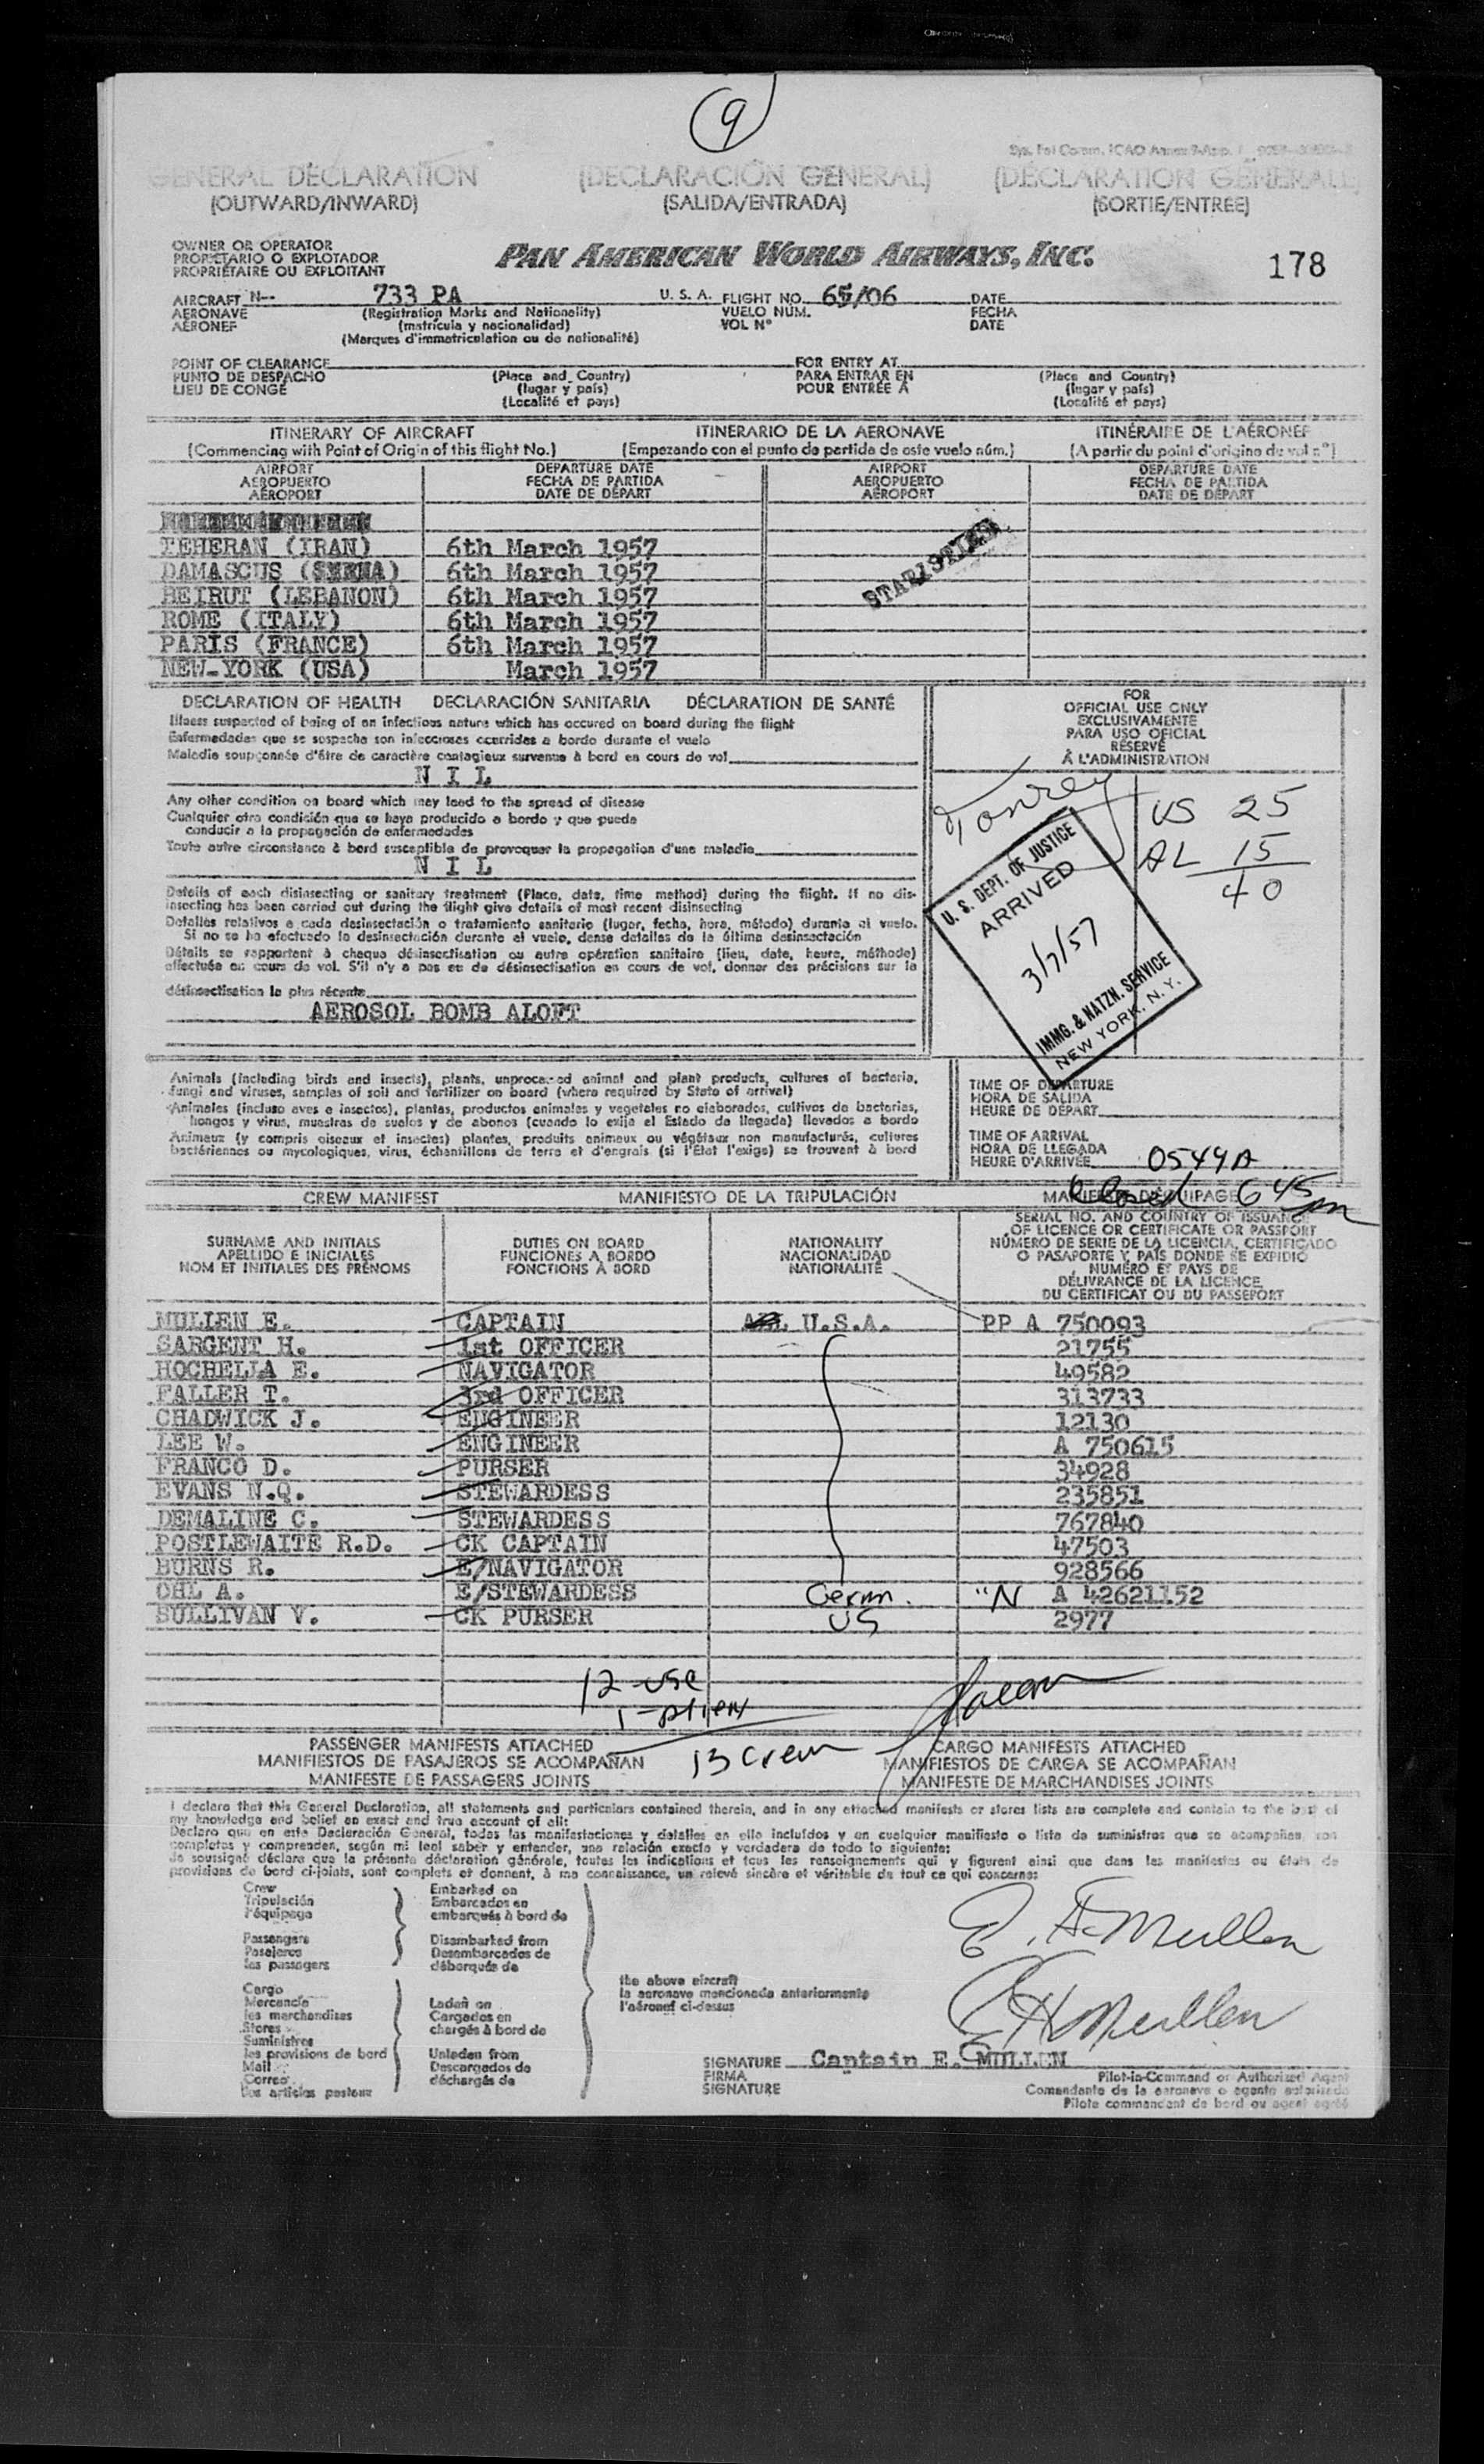 9
GENERAL DECLARATION (DECLARACIÓN GENERAL) (DÉCLARATION GÉNÉRALE)
(OUTWARD/INWARD) (SALIDA/ENTRADA) (SORTIE/ENTRÉE)
OWNER OR OPERATOR
PROPIETARIO O EXPLOTADOR
PROPRIÉTAIRE OU EXPLOITANT
PAN AMERICAN WORLD AIRWAYS, INC.
178
AIRCRAFT N-- 733 PA U. S. A. FLIGHT NO. 65/06 DATE
AERONAVE (Registration Marks and Nationality) VUELO NÚM. FECHA
AÉRONEF (matrícula y nacionalidad) VOL Nº DATE
(Marques d'immatriculation ou de nationalité)
POINT OF CLEARANCE FOR ENTRY AT
PUNTO DE DESPACHO (Place and Country) PARA ENTRAR EN (Place and Country)
LIEU DE CONGÉ (lugar y país) POUR ENTRÉE À (lugar y país)
(Localité et pays) (Localité et pays)
ITINERARY OF AIRCRAFT ITINERARIO DE LA AERONAVE ITINÉRAIRE DE L'AÉRONEF
(Commencing with Point of Origin of this flight No.) (Empezando con el punto de partida de este vuelo núm.) (A partir du point d'origine du vol nº)
AIRPORT DEPARTURE DATE AIRPORT DEPARTURE DATE
AEROPUERTO FECHA DE PARTIDA AEROPUERTO FECHA DE PARTIDA
AÉROPORT DATE DE DÉPART AÉROPORT DATE DE DÉPART
TEHERAN (IRAN) 6th March 1957
DAMASCUS 6th March 1957
BEIRUT (LEBANON) 6th March 1957
ROME (ITALY) 6th March 1957
PARIS (FRANCE) 6th March 1957
NEW-YORK (USA) March 1957
STATISTICS
DECLARATION OF HEALTH DECLARACIÓN SANITARIA DÉCLARATION DE SANTÉ
Illness suspected of being of an infectious nature which has occured on board during the flight
Enfermedades que se sospecha son infecciosas ocurridas a bordo durante el vuelo
Maladie soupçonnée d'être de caractère contagieux survenue à bord en cours de vol
N I L
Any other condition on board which may lead to the spread of disease
Cualquier otra condición que se haya producido a bordo y que pueda
conducir a la propagación de enfermedades
Toute autre circonstance à bord susceptible de provoquer la propagation d'une maladie
N I L
Details of each disinsecting or sanitary treatment (Place, date, time method) during the flight. If no dis-
insecting has been carried out during the flight give details of most recent disinsecting
Detalles relativos a cada desinsectación o tratamiento sanitario (lugar, fecha, hora, método) durante el vuelo.
Si no se ha efectuado la desinsectación durante el vuelo, dense detalles de la última desinsectación
Détails se rapportant à chaque désinsectisation ou autre opération sanitaire (lieu, date, heure, méthode)
effectuée en cours de vol. S'il n'y a pas eu de désinsectisation en cours de vol, donner des précisions sur la
désinsectisation la plus récente
AEROSOL BOMB ALOFT
FOR
OFFICIAL USE ONLY
EXCLUSIVAMENTE
PARA USO OFICIAL
RÉSERVÉ
À L'ADMINISTRATION
US 25
AL 15
40
U. S. DEPT. OF JUSTICE
ARRIVED
3/7/57
IMMG. & NATZN. SERVICE
NEW YORK, N. Y.
Animals (including birds and insects), plants, unprocessed animal and plant products, cultures of bacteria,
fungi and viruses, samples of soil and fertilizer on board (where required by State of arrival)
Animales (incluso aves e insectos), plantas, productos animales y vegetales no elaborados, cultivos de bacterias,
hongos y virus, muestras de suelos y de abonos (cuando lo exija el Estado de llegada) llevados a bordo
Animaux (y compris oiseaux et insectes) plantes, produits animaux ou végétaux non manufacturés, cultures
bactériennes ou mycologiques, virus, échantillons de terre et d'engrais (si l'État l'exige) se trouvant à bord
TIME OF DEPARTURE
HORA DE SALIDA
HEURE DE DÉPART
TIME OF ARRIVAL
HORA DE LLEGADA
HEURE D'ARRIVÉE 0549A
Closed 645 pm
CREW MANIFEST MANIFIESTO DE LA TRIPULACIÓN MANIFESTE D'ÉQUIPAGE
SURNAME AND INITIALS DUTIES ON BOARD NATIONALITY
APELLIDO E INICIALES FUNCIONES A BORDO NACIONALIDAD
NOM ET INITIALES DES PRÉNOMS FONCTIONS À BORD NATIONALITÉ
SERIAL NO. AND COUNTRY OF ISSUANCE
OF LICENCE OR CERTIFICATE OR PASSPORT
NÚMERO DE SERIE DE LA LICENCIA, CERTIFICADO
O PASAPORTE Y PAÍS DONDE SE EXPIDIÓ
NUMÉRO ET PAYS DE
DÉLIVRANCE DE LA LICENCE,
DU CERTIFICAT OU DU PASSEPORT
MULLEN E. CAPTAIN U.S.A. PP A 750093
SARGENT H. 1st OFFICER 21755
HOCHELLA E. NAVIGATOR 49582
FALLER T. 3rd OFFICER 313733
CHADWICK J. ENGINEER 12130
LEE W. ENGINEER A 750615
FRANCO D. PURSER 34928
EVANS N.Q. STEWARDESS 235851
DEMALINE C. STEWARDESS 767840
POSTLEWAITE R.D. CK CAPTAIN 47503
BURNS R. E/NAVIGATOR 928566
OHL A. E/STEWARDESS Germ. "N A 42621152
SULLIVAN V. CK PURSER US 2977
12 - USC
1 - alien
13 Crew
PASSENGER MANIFESTS ATTACHED CARGO MANIFESTS ATTACHED
MANIFIESTOS DE PASAJEROS SE ACOMPAÑAN MANIFIESTOS DE CARGA SE ACOMPAÑAN
MANIFESTE DE PASSAGERS JOINTS MANIFESTE DE MARCHANDISES JOINTS
I declare that this General Declaration, all statements and particulars contained therein, and in any attached manifests or stores lists are complete and contain to the best of
my knowledge and belief an exact and true account of all:
Declaro que en esta Declaración General, todas las manifestaciones y detalles en ella incluídos y en cualquier manifiesto o lista de suministros que se acompañan, son
completos y comprenden, según mi leal saber y entender, una relación exacta y verdadera de todo lo siguiente:
Je soussigné déclare que la présente déclaration générale, toutes les indications et tous les renseignements qui y figurent ainsi que dans les manifestes ou états de
provisions de bord ci-joints, sont complets et donnent, à ma connaissance, un relevé sincère et véritable de tout ce qui concerne:
Crew Embarked on
Tripulación Embarcados en
l'équipage embarqués à bord de
Passengers Disembarked from
Pasajeros Desembarcados de
les passagers débarqués de
Cargo
Mercancía
les marchandises
Stores
Suministros
les provisions de bord
Mail
Correo
les articles postaux
Laden on
Cargados en
chargés à bord de
Unladen from
Descargados de
déchargés de
the above aircraft
la aeronave mencionada anteriormente
l'aéronef ci-dessus
E. H. Mullen
E H Mullen
SIGNATURE Captain E. MULLEN
FIRMA
SIGNATURE
Pilot-in-Command or Authorized Agent
Comandante de la aeronave o agente autorizado
Pilote commandant de bord ou agent agréé